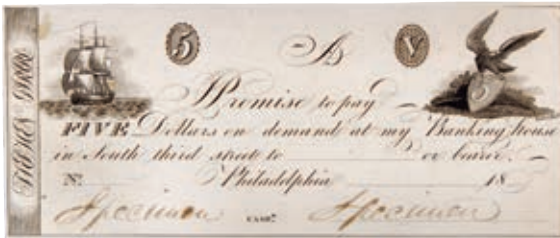 5 A V
I Promise to pay
FIVE Dollars on demand at my Banking house
in South third street to or bearer.
No. Philadelphia 18
Specimen CASHR. Specimen